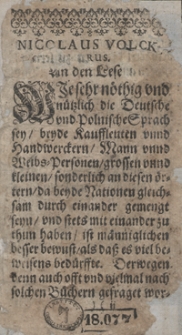 NICOLAUS VOLCK-
Wie sehr nöthig vnd
nützlich die Deutsche
vnd Polnische Sprach
sey / beyde Kauffleuten vnnd
Handwerckern / Mann vnnd
Weibs Personen / grossen vnnd
kleinen / sonderlich an diesen ör-
tern / da beyde Nationen gleich-
sam durch einander gemengt
seyn / vnd stets mit einander zu
thun haben / ist männiglichen
besser bewust / als daß es viel be-
weisens bedürffte. Derwegen
denn auch offt vnd vielmal nach
solchen Büchern gefraget wor-
18.077